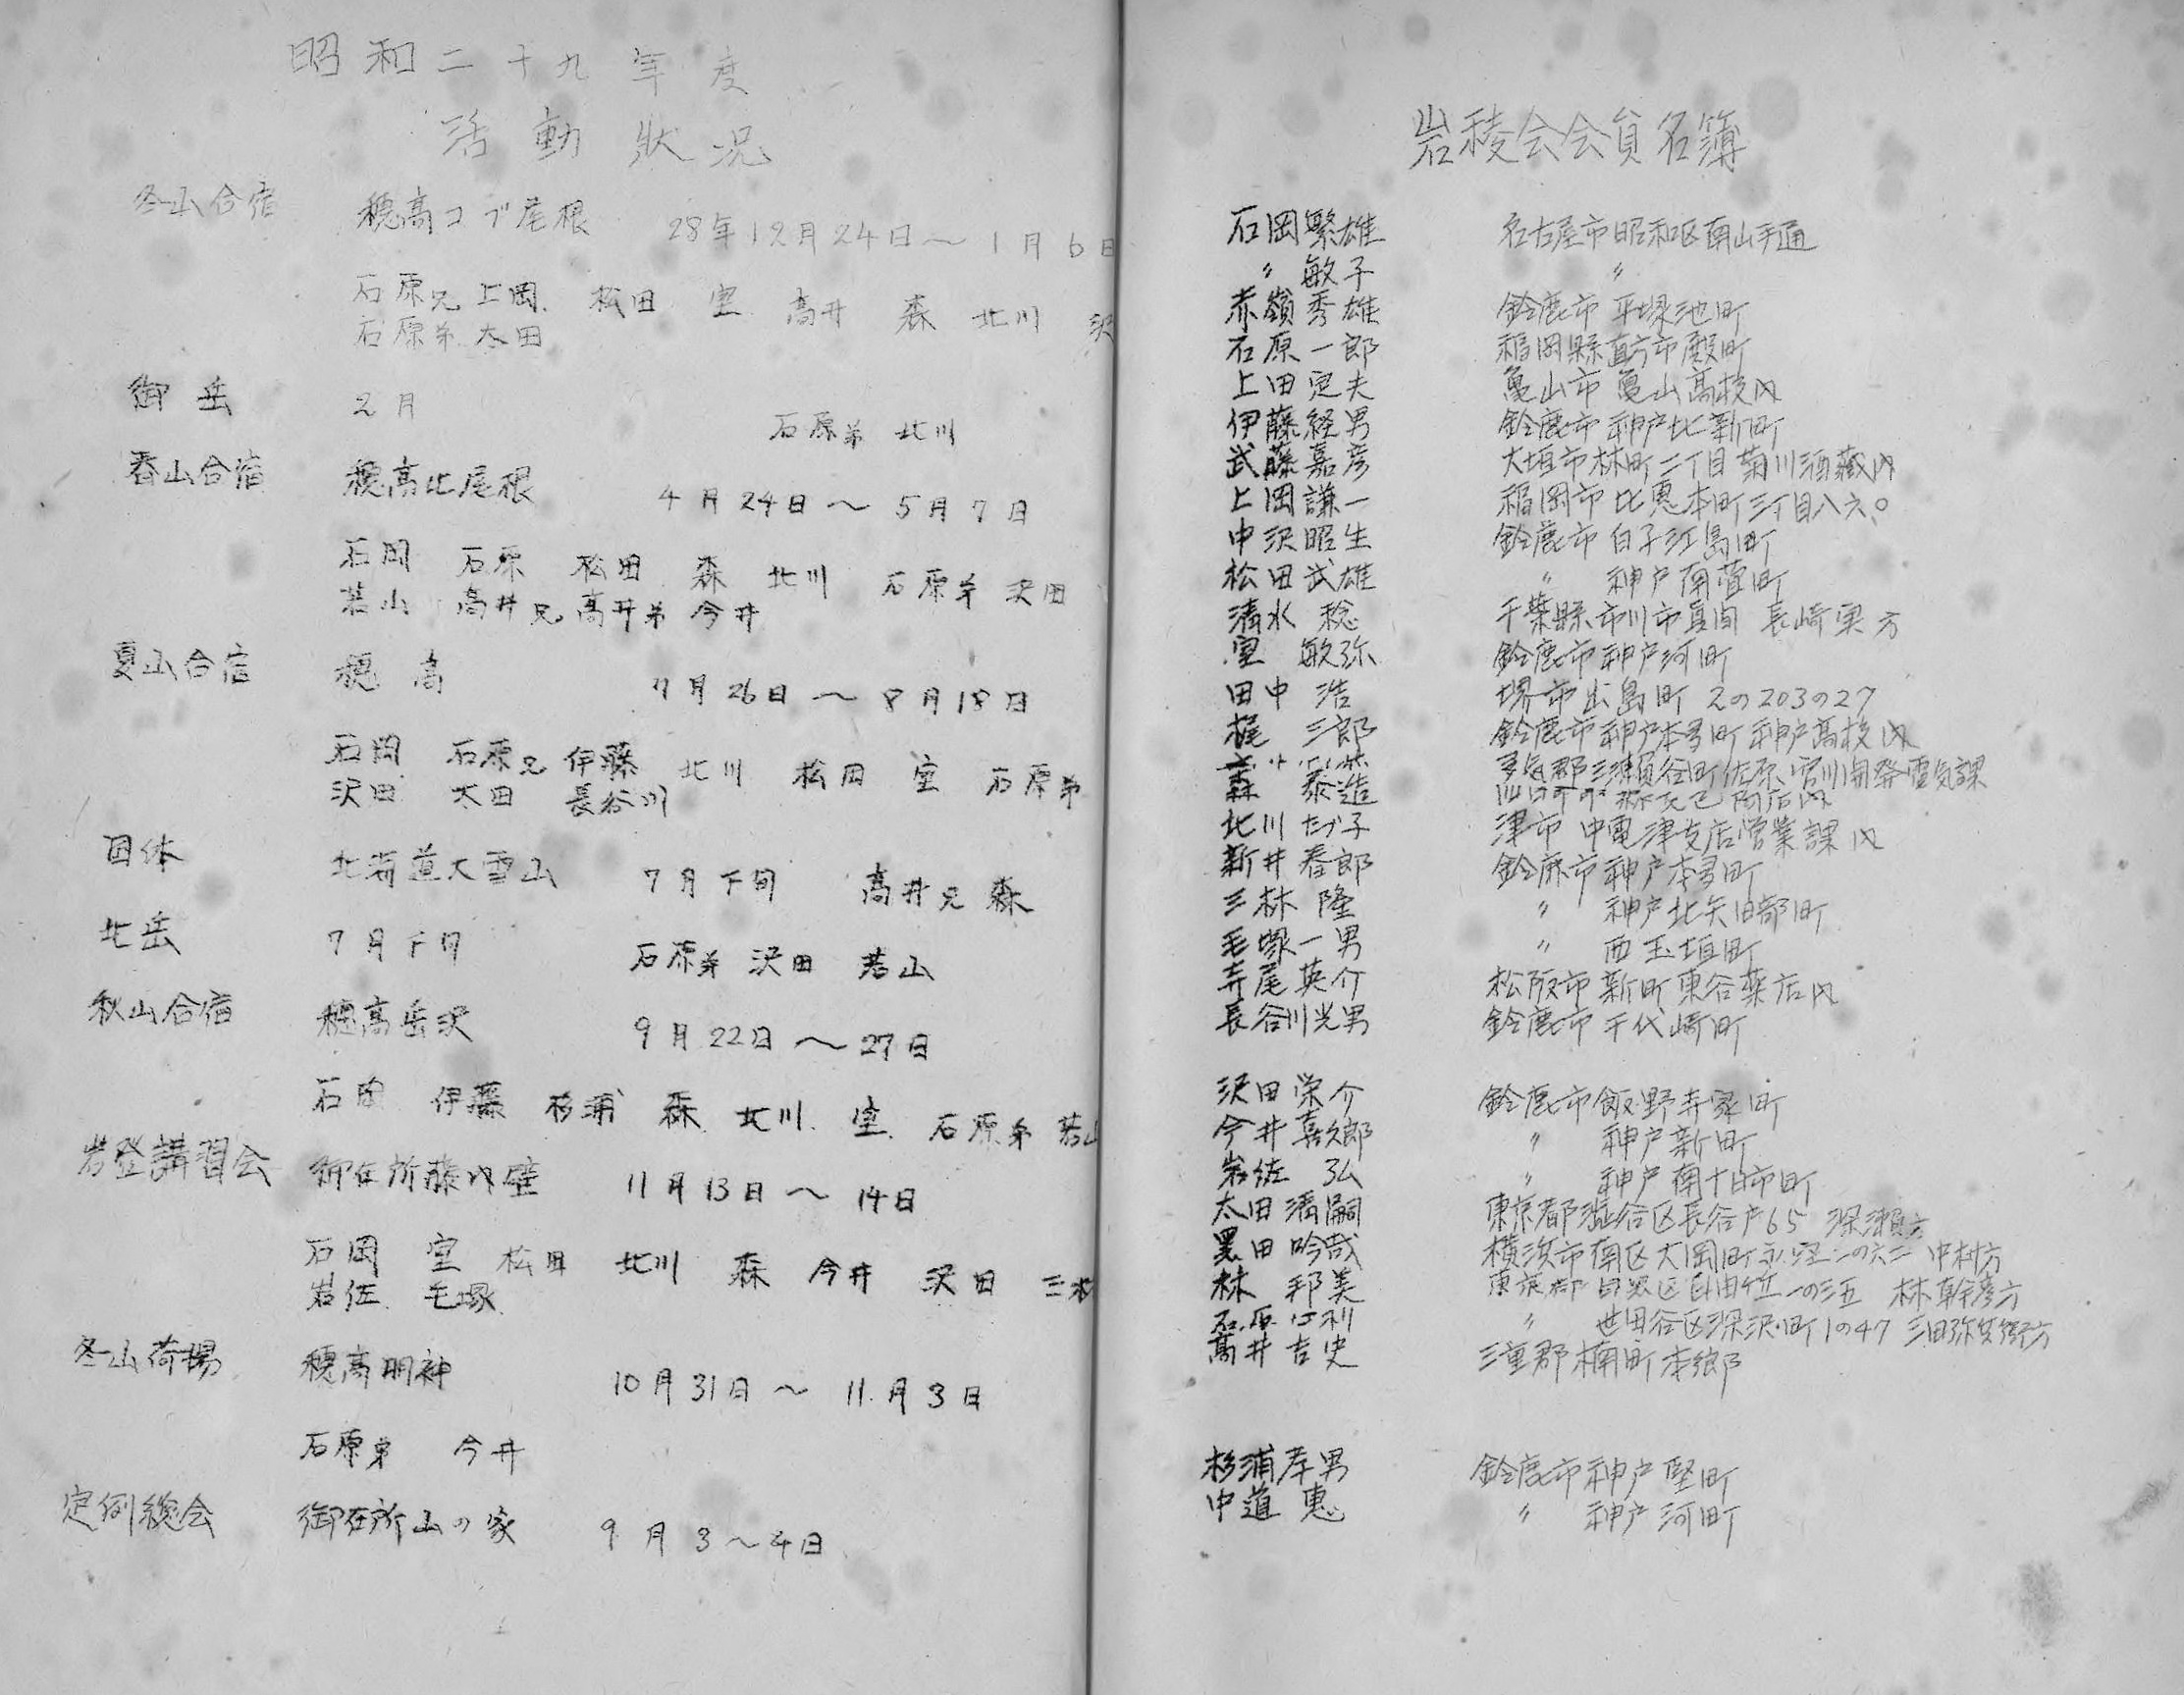 昭和二十九年度
活動狀況
冬山合宿 穂高コブ尾根 28年12月24日〜1月6日
石原兄 上岡. 松田 室 高井 森 北川 沢
石原弟 太田
御岳 2月 石原弟 北川
春山合宿 穂高北尾根 4月24日〜5月7日
石岡 石原 松田 森 北川 石原弟 沢田
若山 高井兄 高井弟 今井
夏山合宿 穂高 7月26日〜8月18日
石岡 石原兄 伊藤 北川 松田 室 石原弟
沢田 太田 長谷川
国体 北海道大雪山 7月下旬 高井兄 森
北岳 7月下旬 石原弟 沢田 若山
秋山合宿 穂高岳沢 9月22日〜27日
石岡 伊藤 杉浦 森 北川 室 石原弟 若山
岩登講習会 御在所藤内壁 11月13日〜14日
石岡 室 松田 北川 森 今井 沢田 三林
岩佐 毛塚
冬山荷揚 穂高明神 10月31日〜11月3日
石原弟 今井
定例総会 御在所山の家 9月3〜4日
岩稜会会員名簿
石岡繁雄 名古屋市昭和区南山手通
〃 敏子 〃
赤嶺秀雄 鈴鹿市平塚池町
石原一郎 福岡縣直方市殿町
上田定夫 亀山市亀山高校内
伊藤経男 鈴鹿市神戸北新町
武藤嘉彦 大垣市林町二丁目菊川酒蔵内
上岡謙一 福岡市比恵本町三丁目八六〇
中沢昭生 鈴鹿市白子江島町
松田武雄 〃 神戸南萱町
清水 稔 千葉縣市川市真間 長崎実方
室 敏弥 鈴鹿市神戸河町
田中 浩 堺市出島町 2の203の27
梶 三郎 鈴鹿市神戸本多町神戸高校内
多気郡三瀬谷町佐原 宮川開発電気課
森 泰造
北川たづ子 津市 中電津支店営業課内
新井春郎 鈴鹿市神戸本多町
三林 隆 〃 神戸北矢田部町
毛塚一男 〃 西玉垣町
寺尾英介 松阪市新町東谷薬店内
長谷川光男 鈴鹿市千代崎町
沢田栄介 鈴鹿市飯野寺家町
今井喜久郎 〃 神戸新町
岩佐 弘 〃 神戸南十日市町
太田清嗣 東京都澁谷区長谷戸65 深瀬方
黒田吟哉 横浜市南区大岡町 中村方
林 邦美 東京都目黒区自由ケ丘一の三五 林幹彦方
〃 世田谷区深沢町1の47 三田弥兵衛方
高井吉史 三重郡楠町本郷
杉浦孝男 鈴鹿市神戸堅町
中道 恵 〃 神戸河町